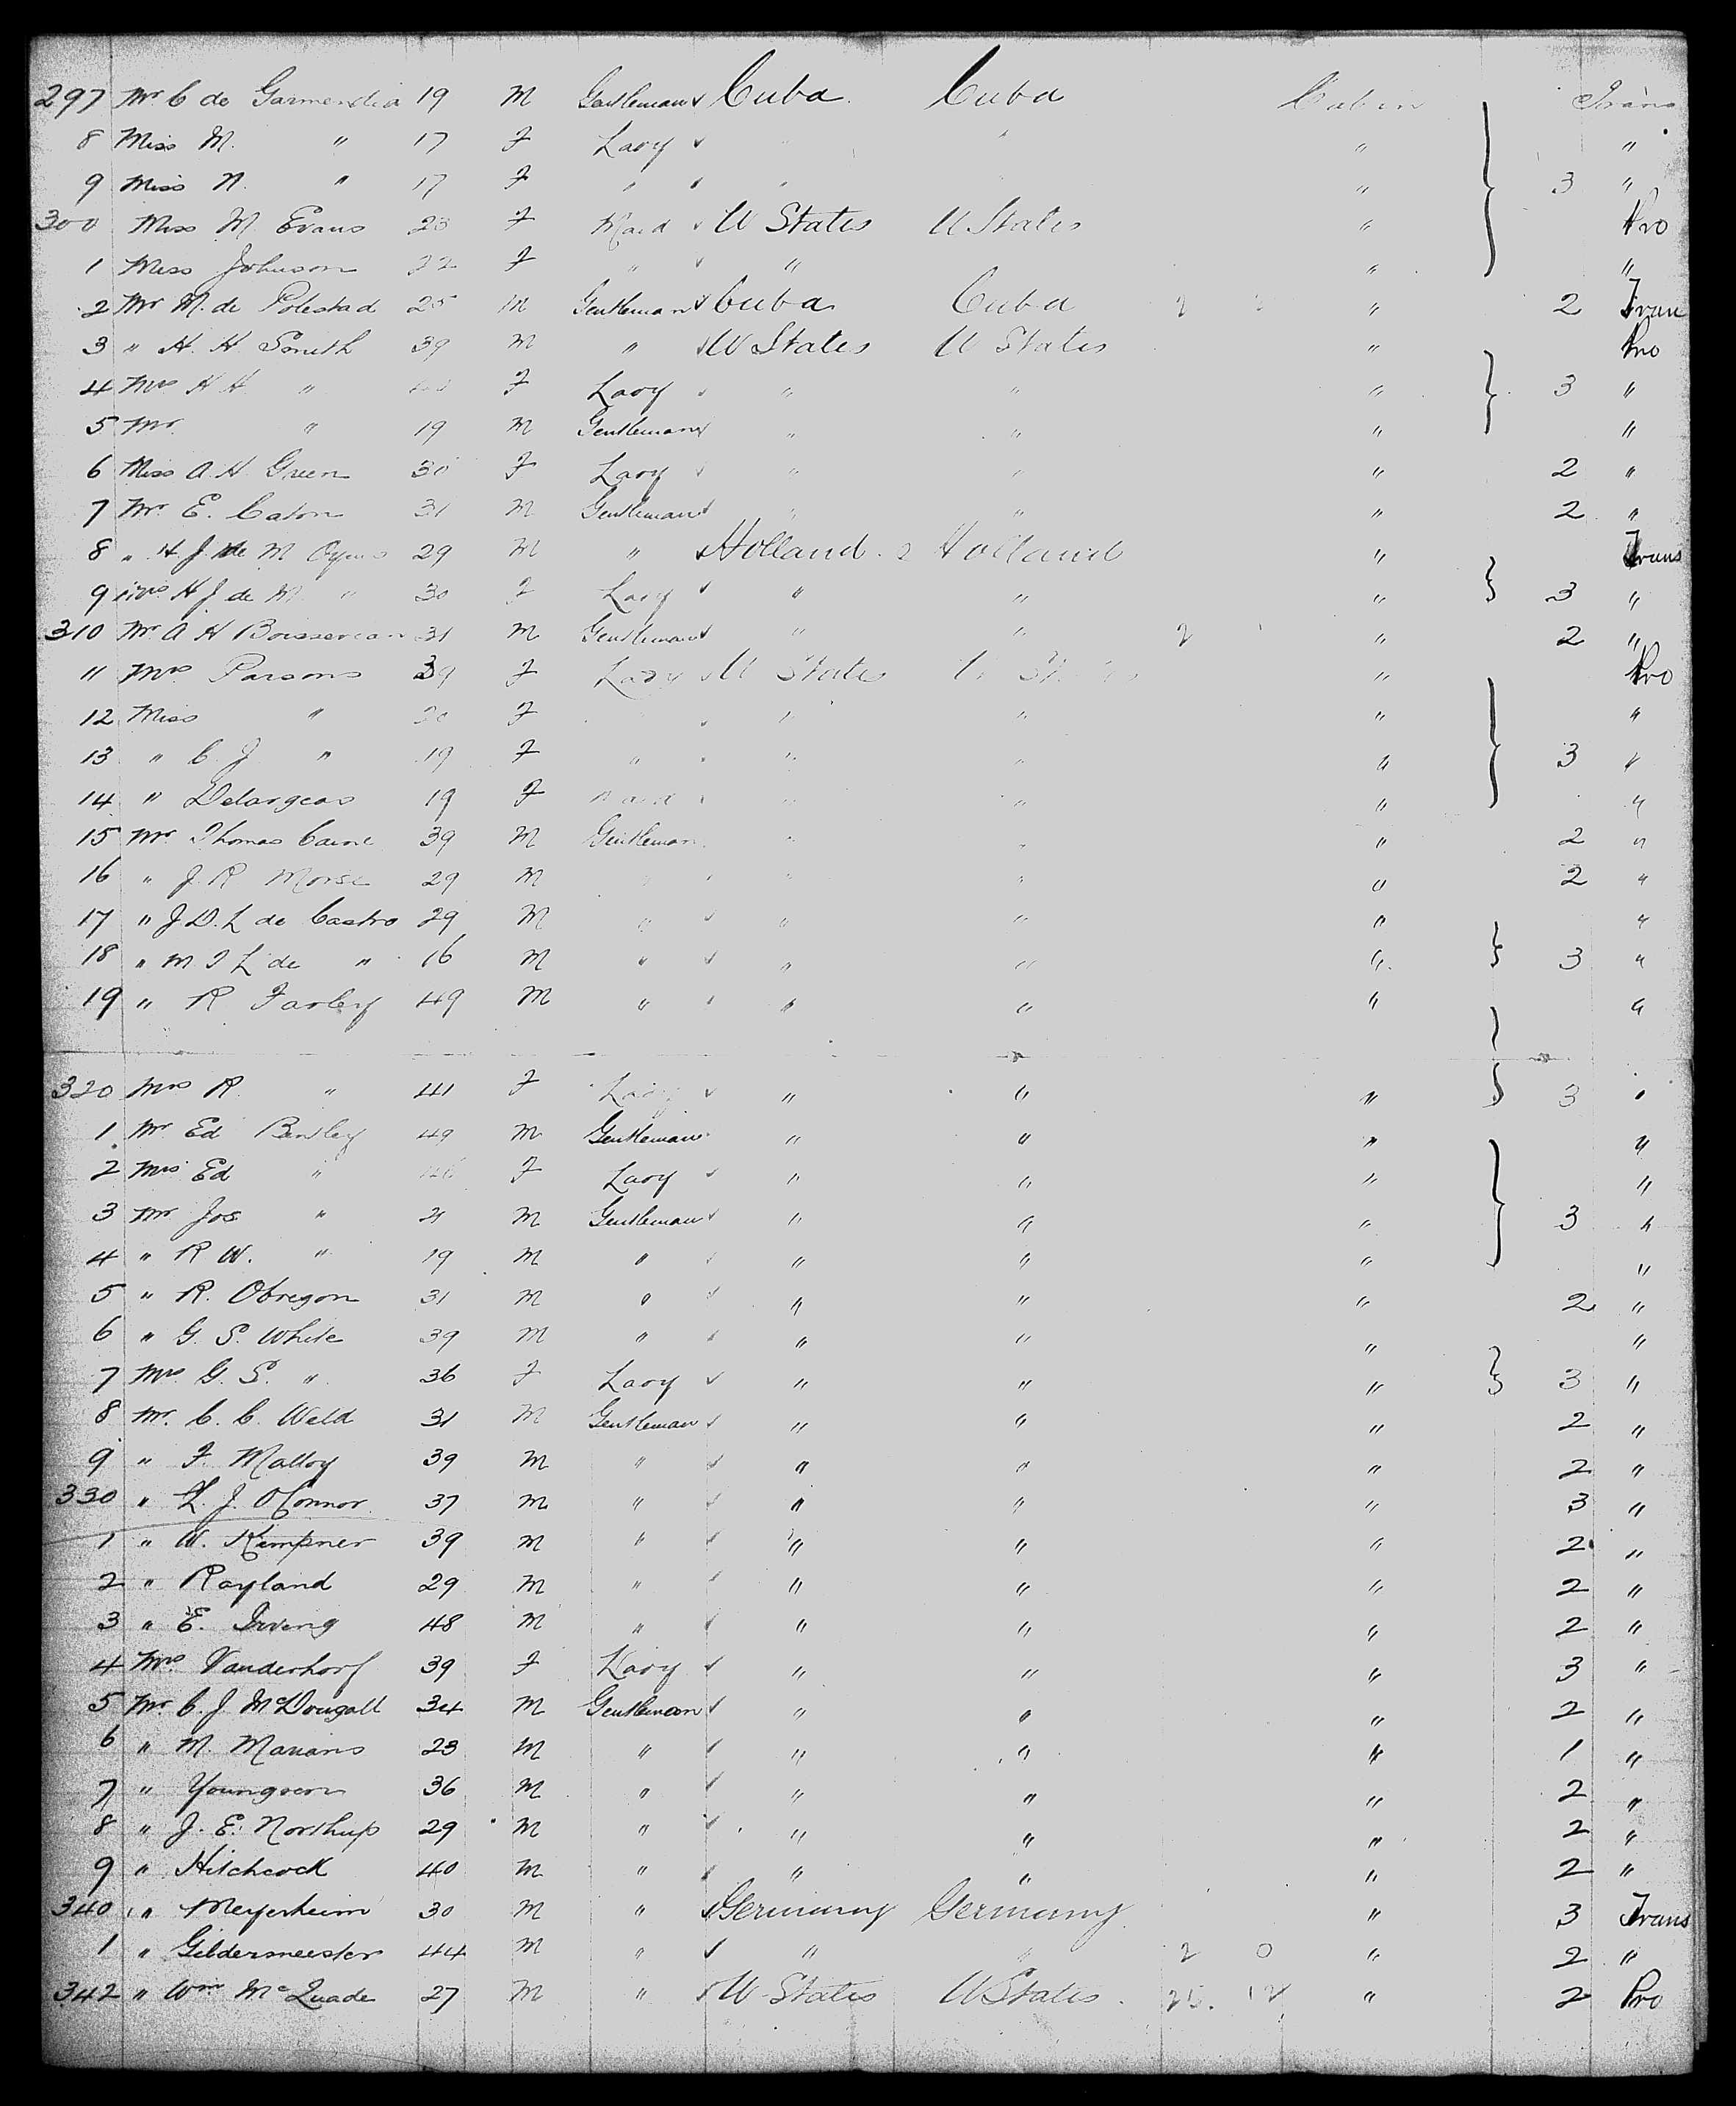 297 Mr C de Garmendia 19 M Gentleman Cuba Cuba Cabin Trans
8 Miss M. " 17 F Lady " " " "
9 Miss N. " 17 F " " " 3 "
300 Miss M. Evans 23 F Maid U States U States " Pro
1 Miss Johnson 22 F " " " "
2 Mr M. de Polestad 25 M Gentleman Cuba Cuba 2 " 2 Tran
3 " H. H. Smith 39 M " U States U States " Pro
4 Mrs H H " F Lady " " " 3 "
5 Mr " 19 M Gentleman " " " "
6 Miss A. H. Green 30 F Lady " " " 2 "
7 Mr E. Caton 31 M Gentleman " " " 2 "
8 " H. J. de M 29 M " Holland 2 Holland " Trans
9 Mrs H J. de M " 30 F Lady " " " 3 "
310 Mr A H Boissevean 31 M Gentleman " " 2 " 2 "
11 Mrs Parsons 39 F Lady U States U States " Pro
12 Miss " 20 F " " " "
13 " C. J " 19 F " " " " 3 "
14 " Delargeas 19 F Maid " " " "
15 Mr Thomas Caine 39 M Gentleman " " " 2 "
16 " J. R Morse 29 M " " " " 2 "
17 " J. D. L de Castro 29 M " " " " "
18 " M I L de " 16 M " " " " 3 "
19 " R Farley 49 M " " " " "
320 Mrs R. " 41 F Lady " " " 3 "
1 Mr Ed Bentley 49 M Gentleman " " " "
2 Mrs Ed " F Lady " " " "
3 Mr Jos " 21 M Gentleman " " " 3 "
4 " R W. " 19 M " " " " "
5 " R. Obregon 31 M " " " " 2 "
6 " G. S. White 39 M " " " " "
7 Mrs G. S. " 36 F Lady " " " 3 "
8 Mr. C. C. Weld 31 M Gentleman " " " 2 "
9 " F. Malloy 39 M " " " " 2 "
330 " L. J. O'Connor 37 M " " " " 3 "
1 " W. Kempner 39 M " " " " 2 "
2 " Rayland 29 M " " " " 2 "
3 " E. Irving 48 M " " " " 2 "
4 Mrs Vanderhorf 39 F Lady " " " 3 "
5 Mr C. J McDougall 34 M Gentleman " " " 2 "
6 " M. Marians 23 M " " " " 1 "
7 " Youngson 36 M " " " " 2 "
8 " J. E. Northup 29 M " " " " 2 "
9 " Hitchcock 40 M " " " " 2 "
340 " Meyerheim 30 M " Germany Germany " 3 Trans
1 " Gildermeester 44 M " " " 2 0 " 2 "
342 " Wm McQuade 27 M " U States U States 25. 12 " 2 Pro